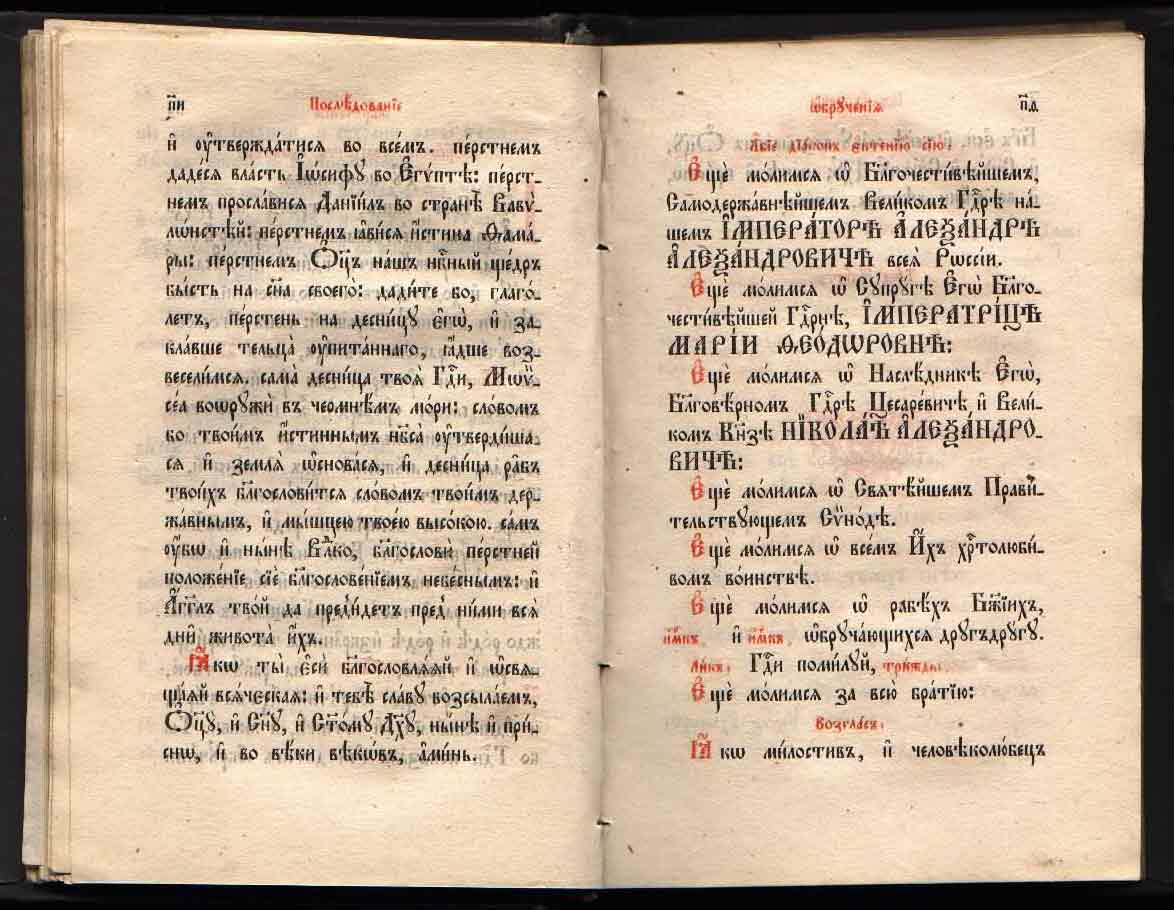 п҃и
Послѣ́дованїе
и҆ ᲂу҆твержда́тисѧ во всѐмъ. пе́рстнемъ
даде́сѧ вла́сть І҆ѡ́сифꙋ во Е҆гѵ́птѣ: пе́рст-
немъ просла́висѧ Данїи́лъ во странѣ̀ Вавѵ-
лѡ́нстѣй: пе́рстнемъ ꙗ҆ви́сѧ и҆́стина Ѳама́-
ры: пе́рстнемъ Ѻ҆ц҃ъ на́шъ нб҇ный ще́дръ
бы́сть на сн҃а своего̀: дади́те бо, глаго́-
летъ, пе́рстень на десни́цꙋ є҆гѡ̀, и҆ за-
кла́вше тельца̀ ᲂу҆пита́ннаго, ꙗ҆́дше воз-
весели́мсѧ. сама̀ десни́ца твоѧ̀ Гд҇и, Мѡѷ-
се́а воѡрꙋжѝ въ чермнѣ́мъ мо́ри: сло́вомъ
бо твои́мъ и҆́стиннымъ нб҃са̀ ᲂу҆тверди́ша-
сѧ и҆ землѧ̀ ѡ҆снова́сѧ, и҆ десни́ца ра̑бъ
твои́хъ бл҃гослови́тсѧ сло́вомъ твои́мъ дер-
жа́внымъ, и҆ мы́шцею твое́ю высо́кою. са́мъ
ᲂу҆́бѡ и҆ ны́нѣ Влⷣко, бл҃гословѝ пе́рстней
положе́нїе сїѐ бл҃гослове́нїемъ небе́снымъ: и҆
А҆́гг҃лъ тво́й да преди́детъ пред̾ ни́ми всѧ̑
дни̑ живота̀ и҆́хъ.
Ꙗ҆́кѡ ты̀ є҆сѝ бл҃гословлѧ́ѧй и҆ ѡ҆свѧ-
ща́ѧй всѧ́ческаѧ: и҆ тебѣ̀ сла́вꙋ возсыла́емъ,
Ѻ҆ц҃ꙋ̀, и҆ Сн҃ꙋ, и҆ Ст҃о́мꙋ Дх҃ꙋ, ны́нѣ и҆ при́-
снѡ, и҆ во вѣ́ки вѣкѡ́въ, а҆ми́нь.
ѡ҆брꙋче́нїѧ
п҃ѳ
А҆́бїе дїа́конъ є҆ктенїю̀ сїю̀:
Е҆щѐ мо́лимсѧ ѡ҆ Бл҃гочести́вѣйшемъ,
Самодержа́внѣйшемъ Вели́комъ Гдⷭ҇рѣ на́-
шемъ І҆МПЕРА́ТОРѢ А҆ЛЕѮА́НДРѢ
А҆ЛЕѮА́НДРОВИЧѢ всеѧ̀ Рѡссі́и.
Е҆щѐ мо́лимсѧ ѡ҆ Сꙋпрꙋ́гѣ Е҆гѡ̀ Бл҃го-
чести́вѣйшей Гдⷭ҇рнѣ, І҆МПЕРАТРІ́ЦѢ
МАРІ́И ѲЕОДѠРОВНѢ:
Е҆щѐ мо́лимсѧ ѡ҆ Наслѣ́дникѣ Е҆гѡ̀,
Бл҃говѣ́рномъ Гдⷭ҇рѣ Цесаре́вичѣ и҆ Вели́-
комъ Кн҃зѣ НІКОЛА́Ѣ А҆ЛЕѮА́НДРО-
ВИЧѢ:
Е҆щѐ мо́лимсѧ ѡ҆ Свѧтѣ́йшемъ Прави́-
тельствꙋющемъ Сѷно́дѣ.
Е҆щѐ мо́лимсѧ ѡ҆ все́мъ И҆́хъ хрⷭ҇толюби́-
вомъ во́инствѣ.
Е҆щѐ мо́лимсѧ ѡ҆ рабѣ́хъ Бж҃їихъ,
и҆́м҃къ, и҆ и҆́м҃къ, ѡ҆брꙋча́ющихсѧ дрꙋ́гъдрꙋгꙋ.
Ли́къ: Гд҇и поми́лꙋй, три́жды:
Е҆щѐ мо́лимсѧ за всю̀ бра́тїю:
Во́згласъ:
Ꙗ҆́кѡ ми́лостивъ, и҆ человѣколю́бецъ